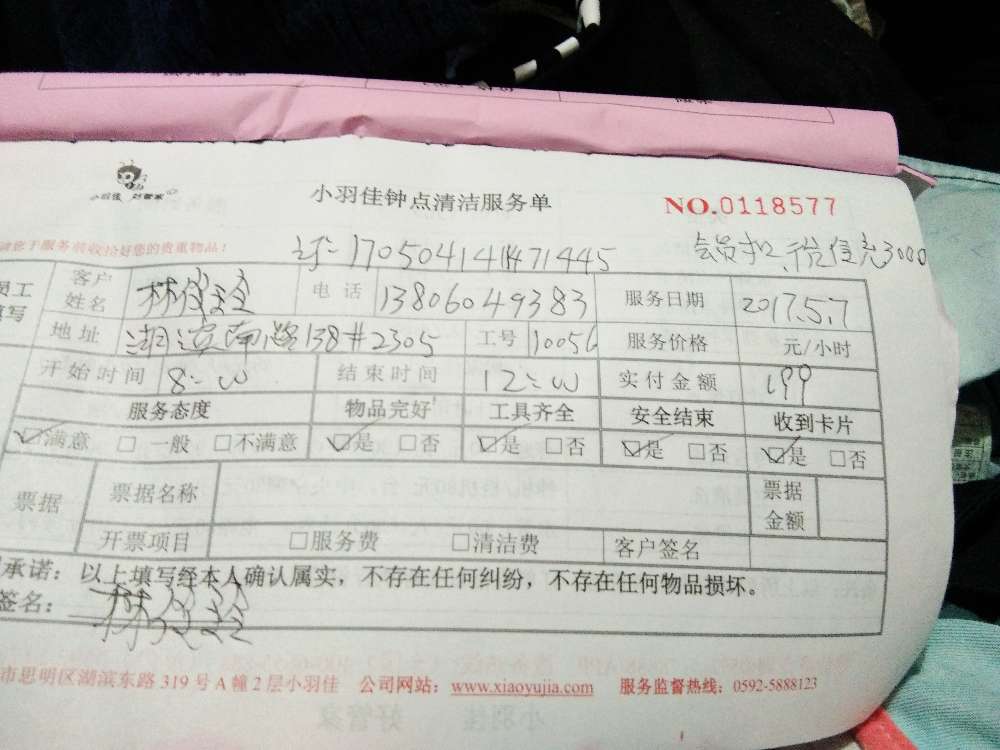 小羽佳 好管家
小羽佳钟点清洁服务单
NO.0118577
于服务前收拾好您的贵重物品！
员工
填写
客户
姓名
电话 13806049383
服务日期 2017.5.7
地址 湖滨南路138#2305
工号 10056
服务价格 元/小时
开始时间 8:00
结束时间 12:00
实付金额 199
服务态度 物品完好 工具齐全 安全结束 收到卡片
☑满意 □一般 □不满意 ☑是 □否 ☑是 □否 ☑是 □否 ☑是 □否
票据 票据名称 票据
金额
开票项目 □服务费 □清洁费 客户签名
承诺：以上填写经本人确认属实，不存在任何纠纷，不存在任何物品损坏。
签名：
市思明区湖滨东路 319 号 A 幢 2 层小羽佳 公司网站：www.xiaoyujia.com 服务监督热线：0592-5888123